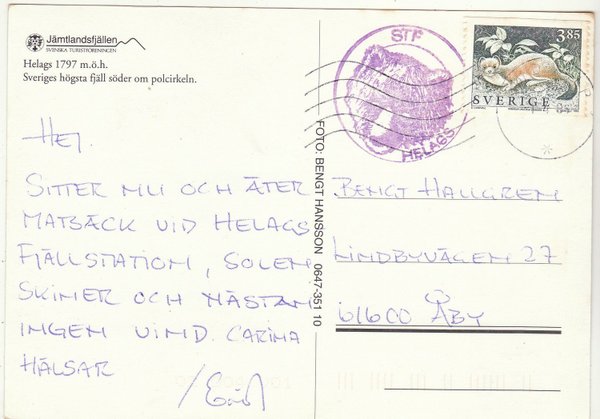 Jämtlandsfjällen
SVENSKA TURISTFÖRENINGEN
Helags 1797 m.ö.h.
Sveriges högsta fjäll söder om polcirkeln.
HEJ.
SITTER NU OCH ÄTER
MATSÄCK VID HELAGS
FJÄLLSTATION, SOLEN
SKINER OCH NÄSTAN
INGEN VIND. CARINA
HÄLSAR
FOTO: BENGT HANSSON 0647-351 10
STF
HELAGS
3,85
SVERIGE
BENGT HALLGREN
LINDBYVÄGEN 27
61600 ÅBY